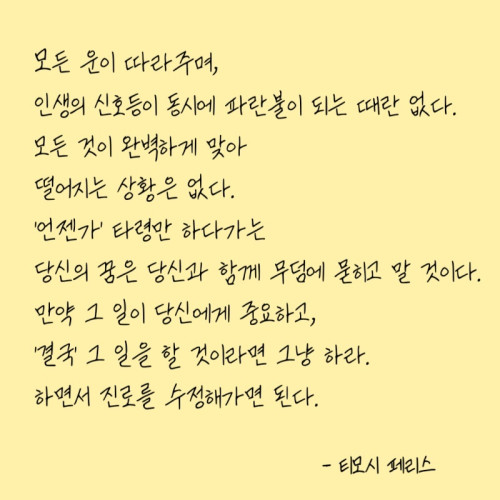 모든 운이 따라주며,
인생의 신호등이 동시에 파란불이 되는 때란 없다.
모든 것이 완벽하게 맞아
떨어지는 상황은 없다.
'언젠가' 타령만 하다가는
당신의 꿈은 당신과 함께 무덤에 묻히고 말 것이다.
만약 그 일이 당신에게 중요하고,
'결국' 그 일을 할 것이라면 그냥 하라.
하면서 진로를 수정해가면 된다.
- 티모시 페리스